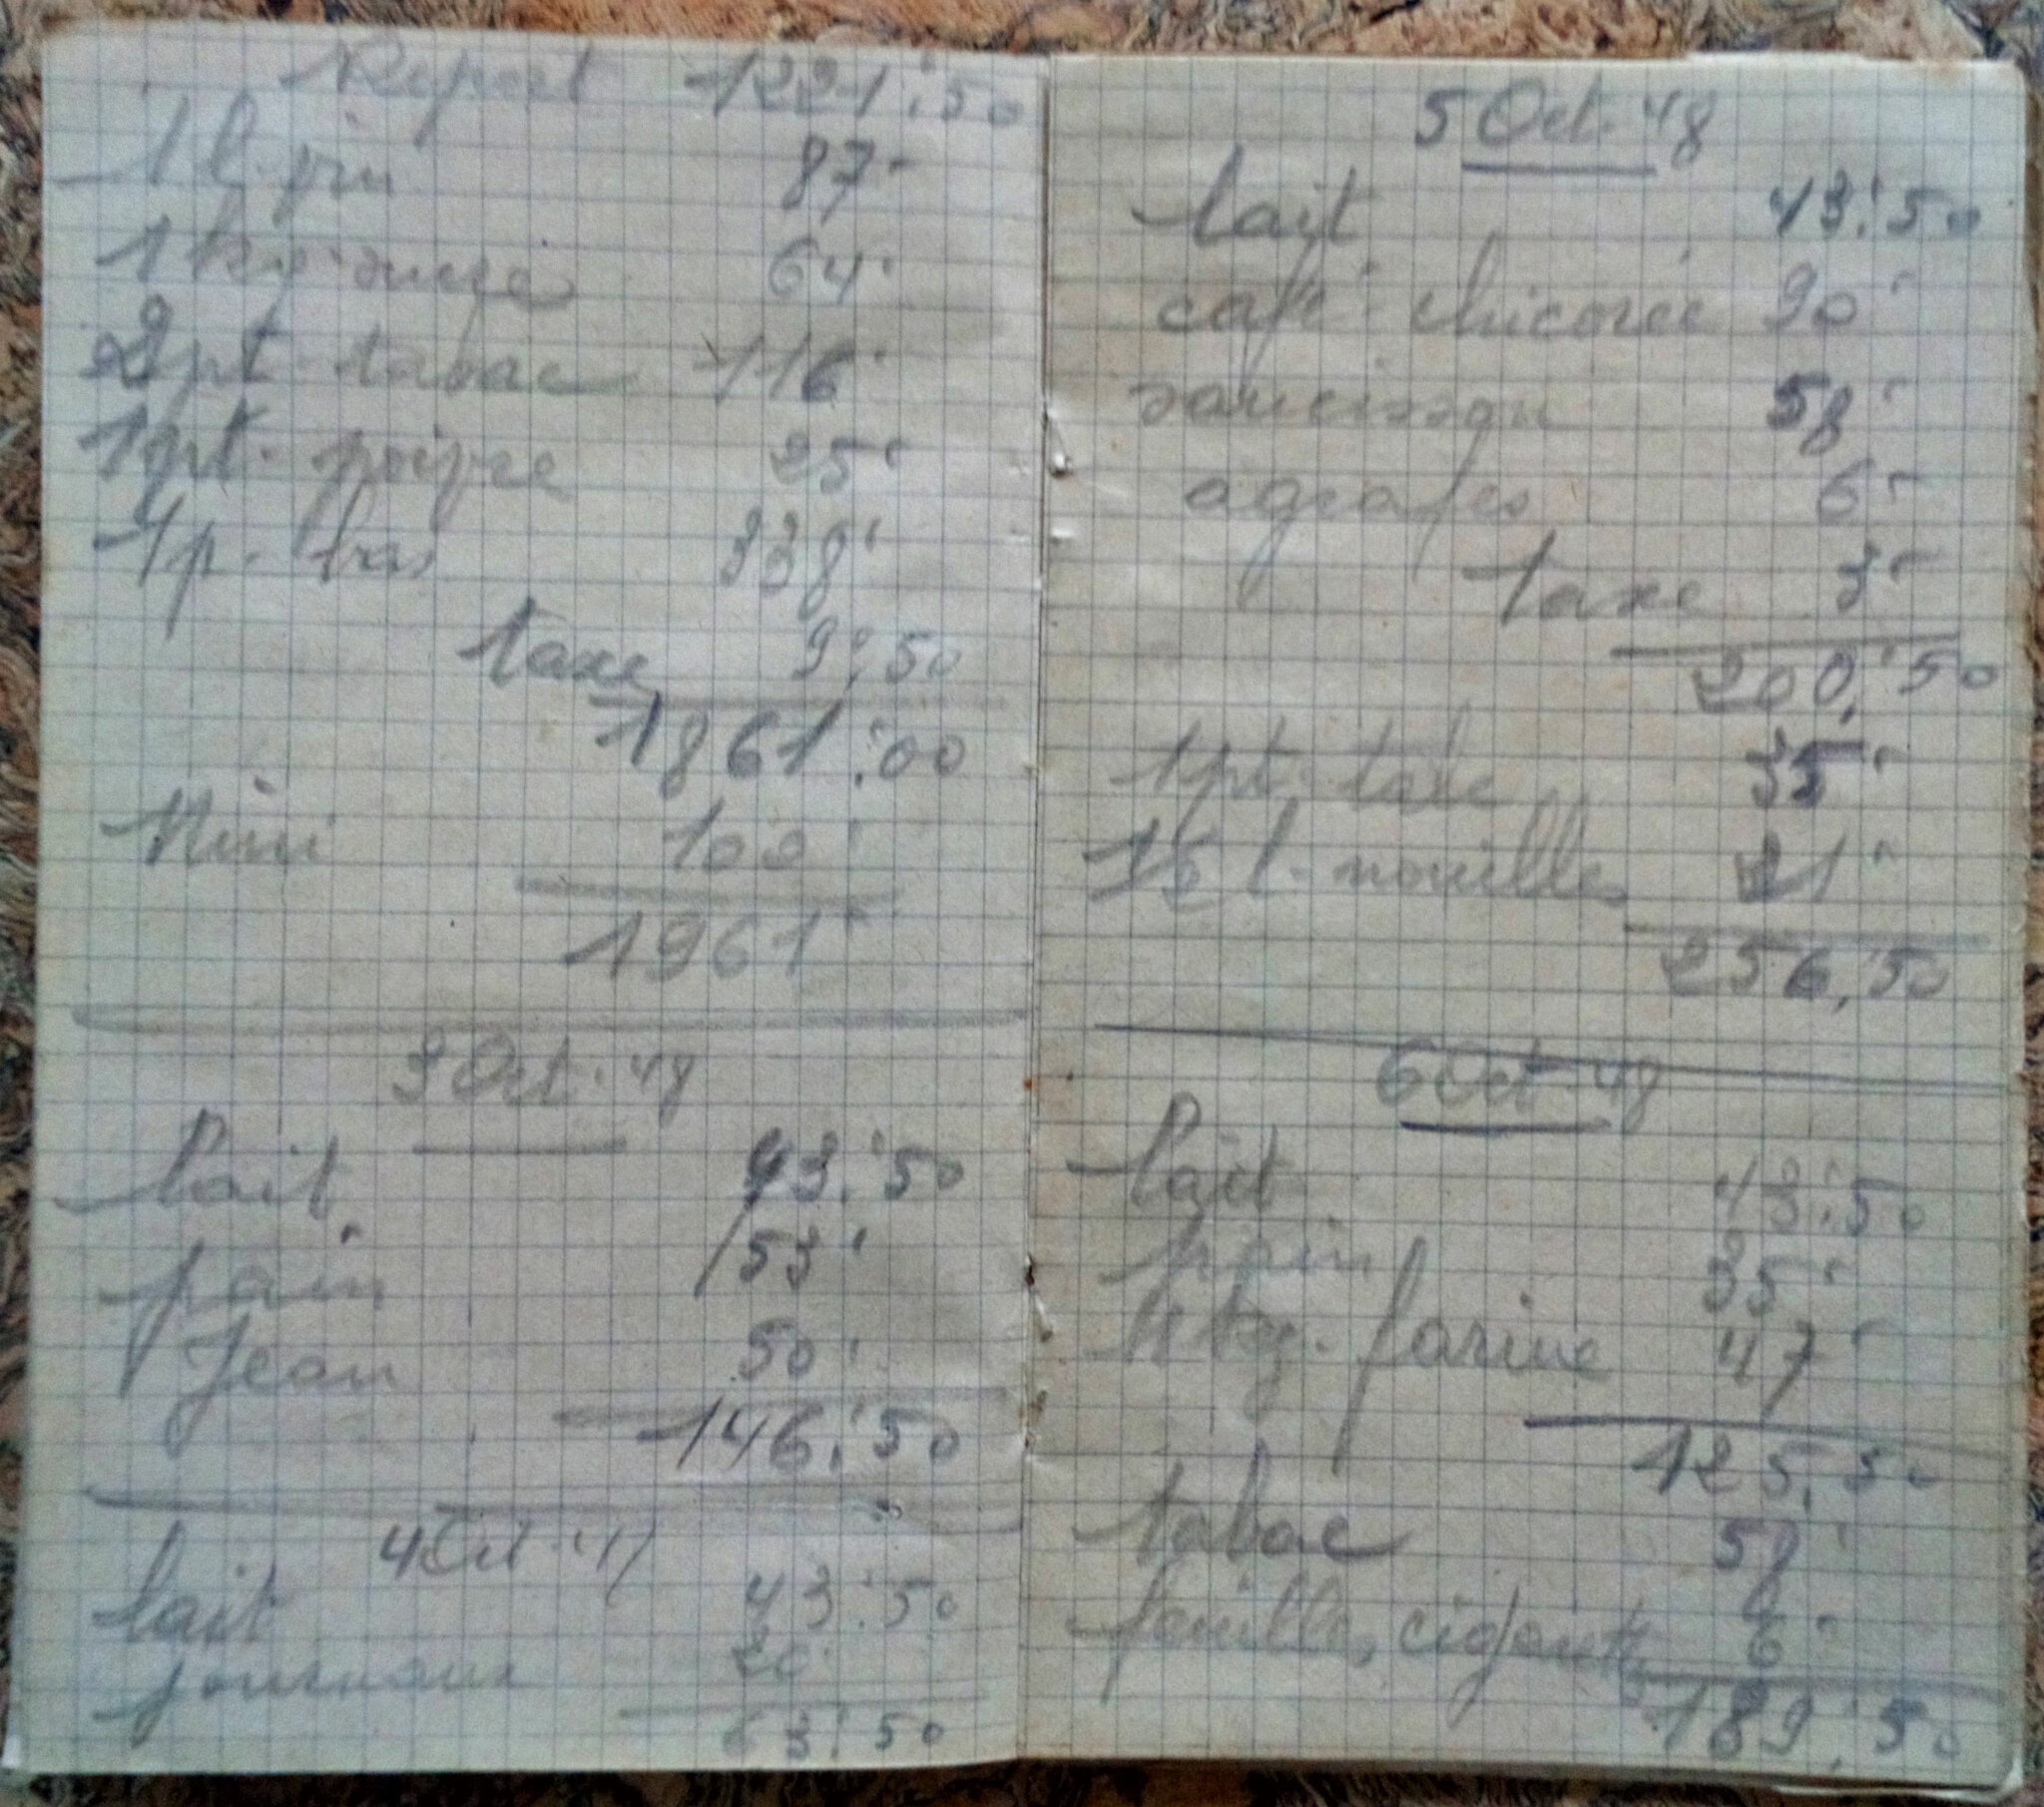 Report 1221:50
1 l. vin 87-
1 kg. sucre 64'
2 pt. tabac 116'
1 pt. poivre 25'
1 p. bas 338'
taxe 9:50
1861:00
Mimi 100'
1961-
3 Oct. 48
lait 43:50
pain 53'
Jean 50'
146:50
4 Oct.
lait 43:50
journaux 20'
63:50
5 Oct. 48
lait 43:50
café chicorée 90-
saucisson 58-
agrafes 6-
taxe 3-
200,50
1 pt. 35-
l. nouilles 21-
256,50
6 Oct 48
lait 43:50
pain 35-
kg. farine 47-
125,50
tabac 58
feuilles, cigarette 6-
189:50